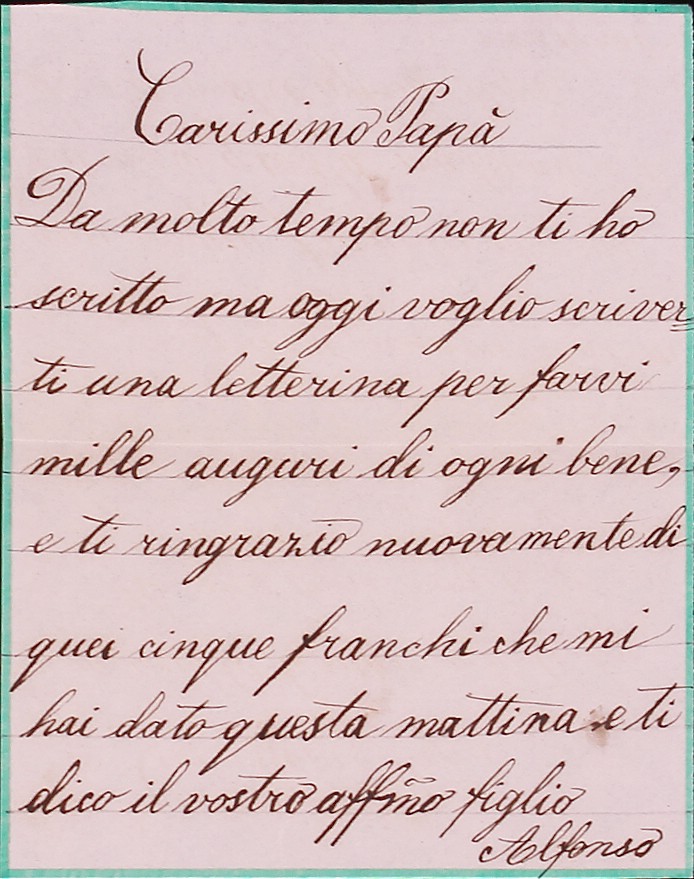 Carissimo Papà
Da molto tempo non ti ho
scritto ma oggi voglio scriver=
ti una letterina per farvi
mille auguri di ogni bene,
e ti ringrazio nuovamente di
quei cinque franchi che mi
hai dato questa mattina e ti
dico il vostro affm̃o figlio
Alfonso